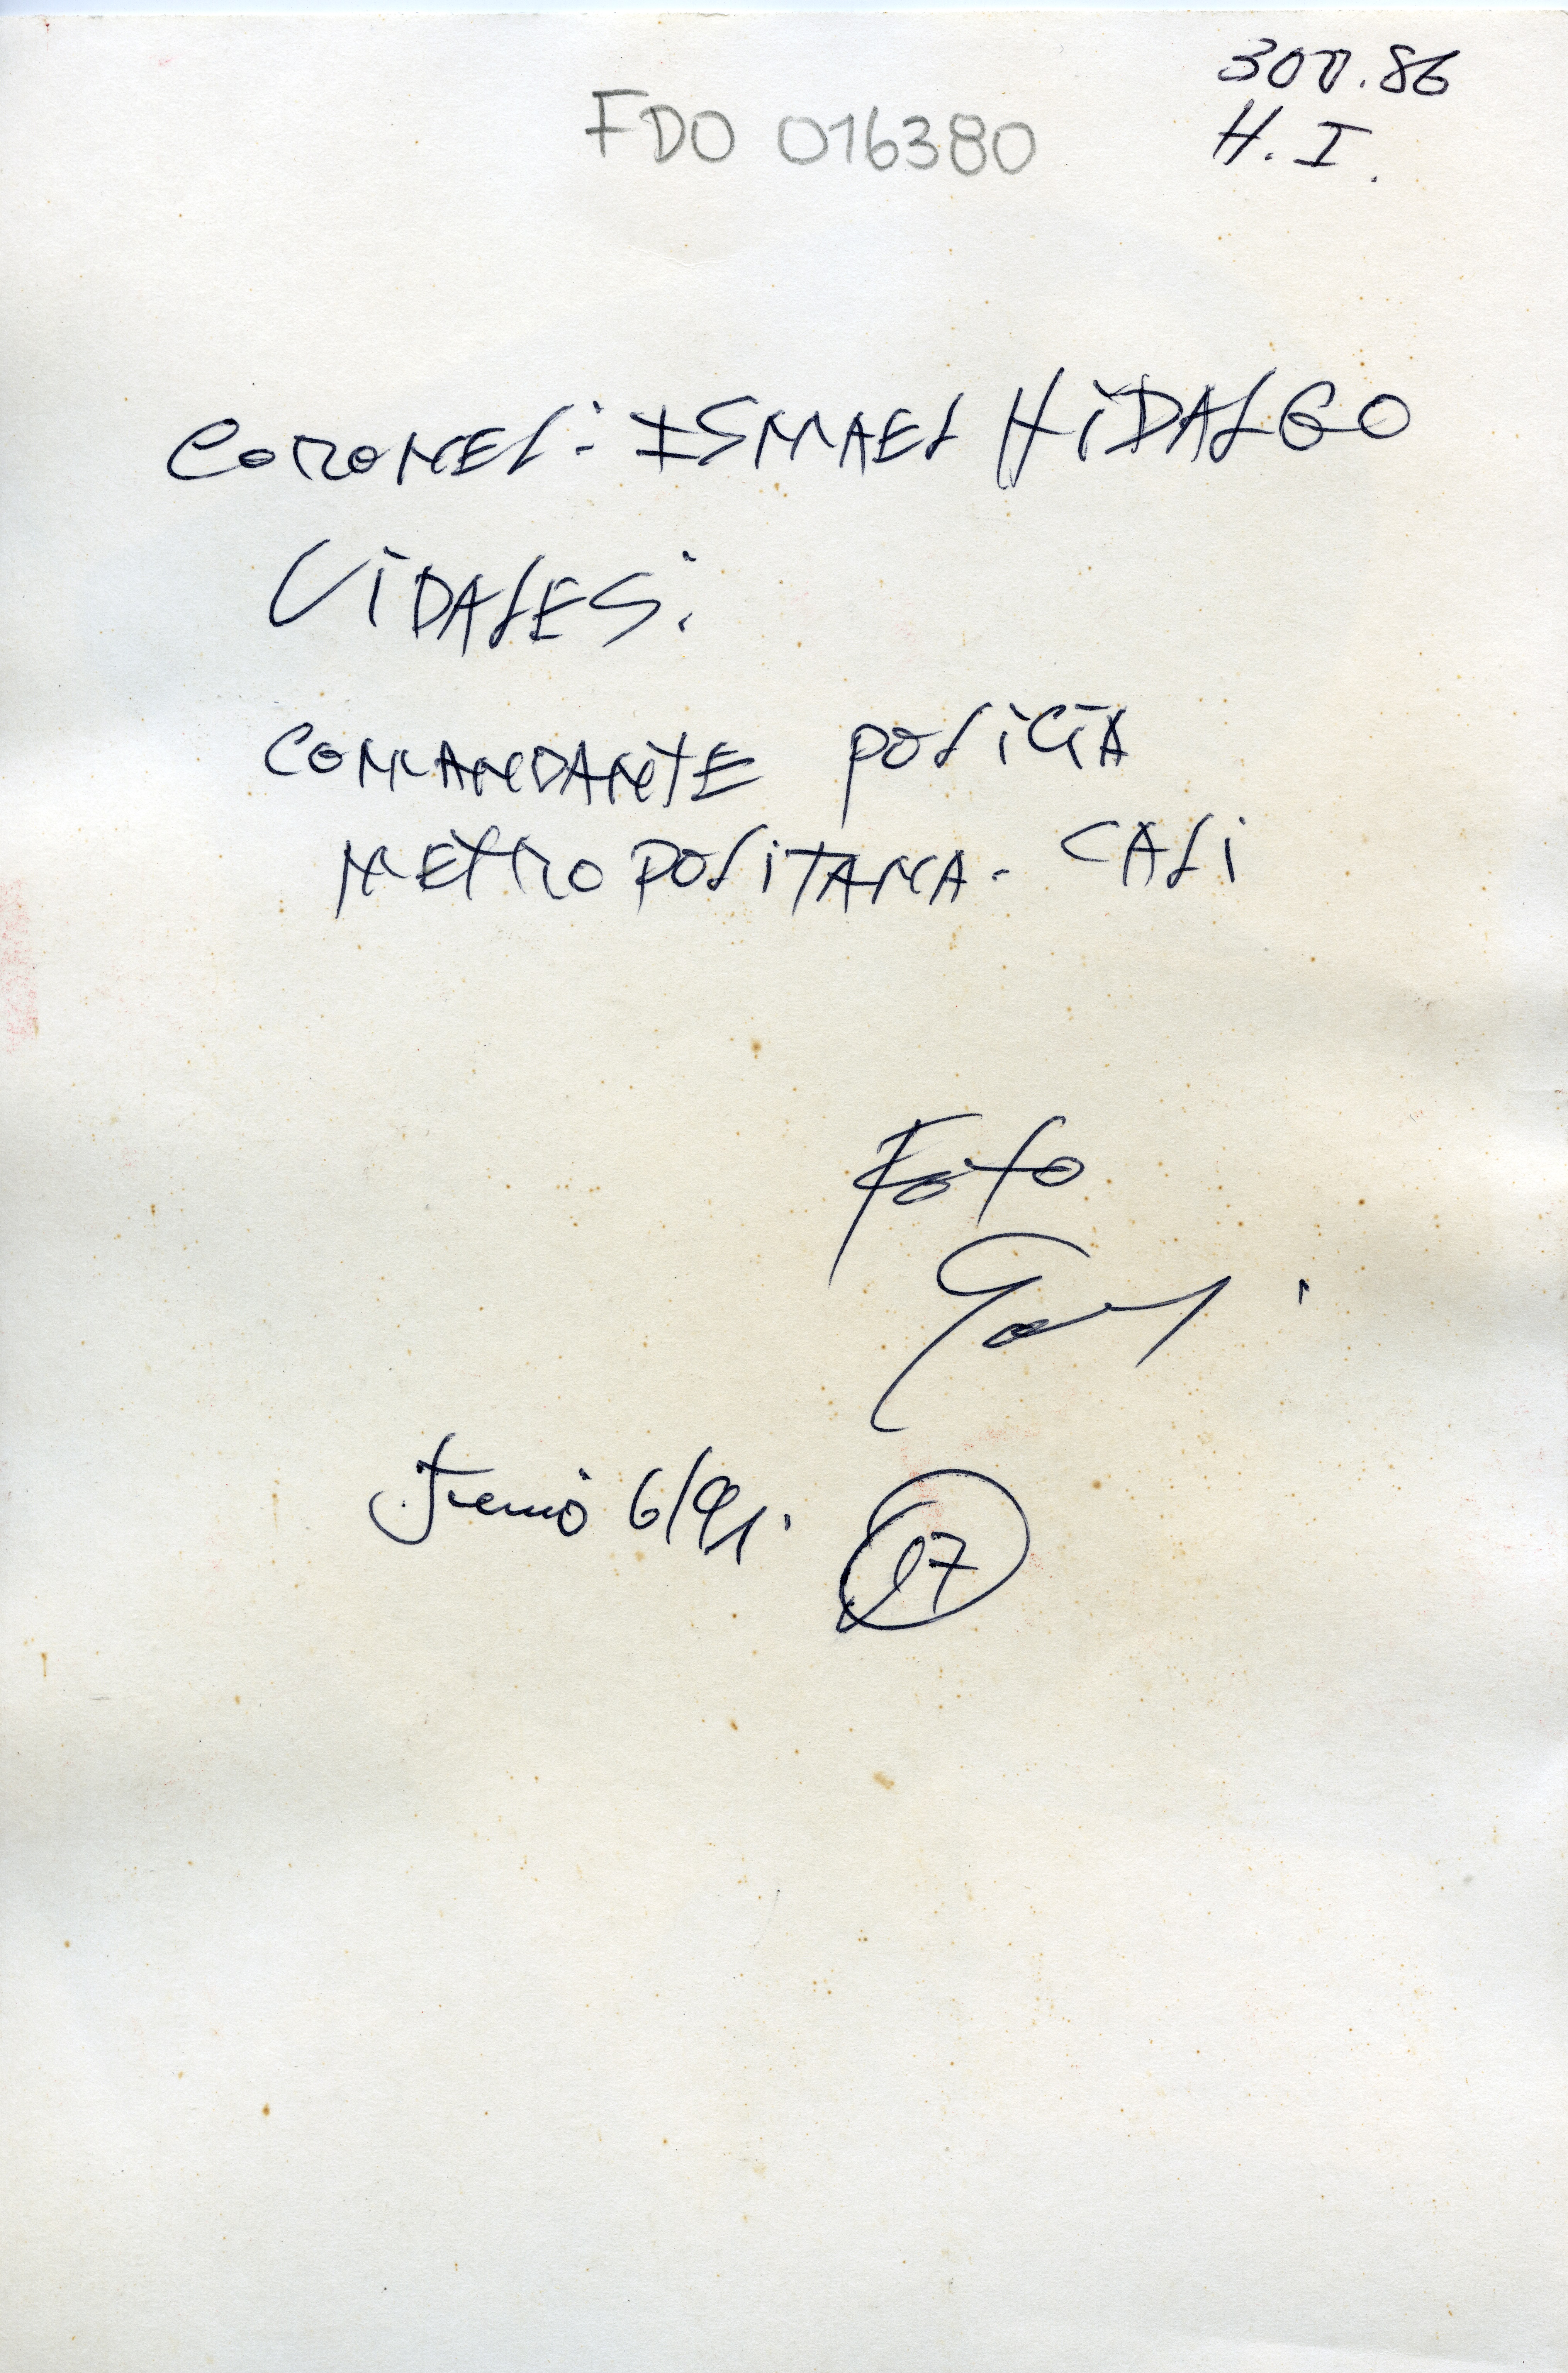 300.86
H.I.
FDO 016380
CORONEL: ISMAEL HIDALGO
VIDALES:
COMANDANTE POLICIA
METROPOLITANA - CALI
Foto
Junio 6/91.
17